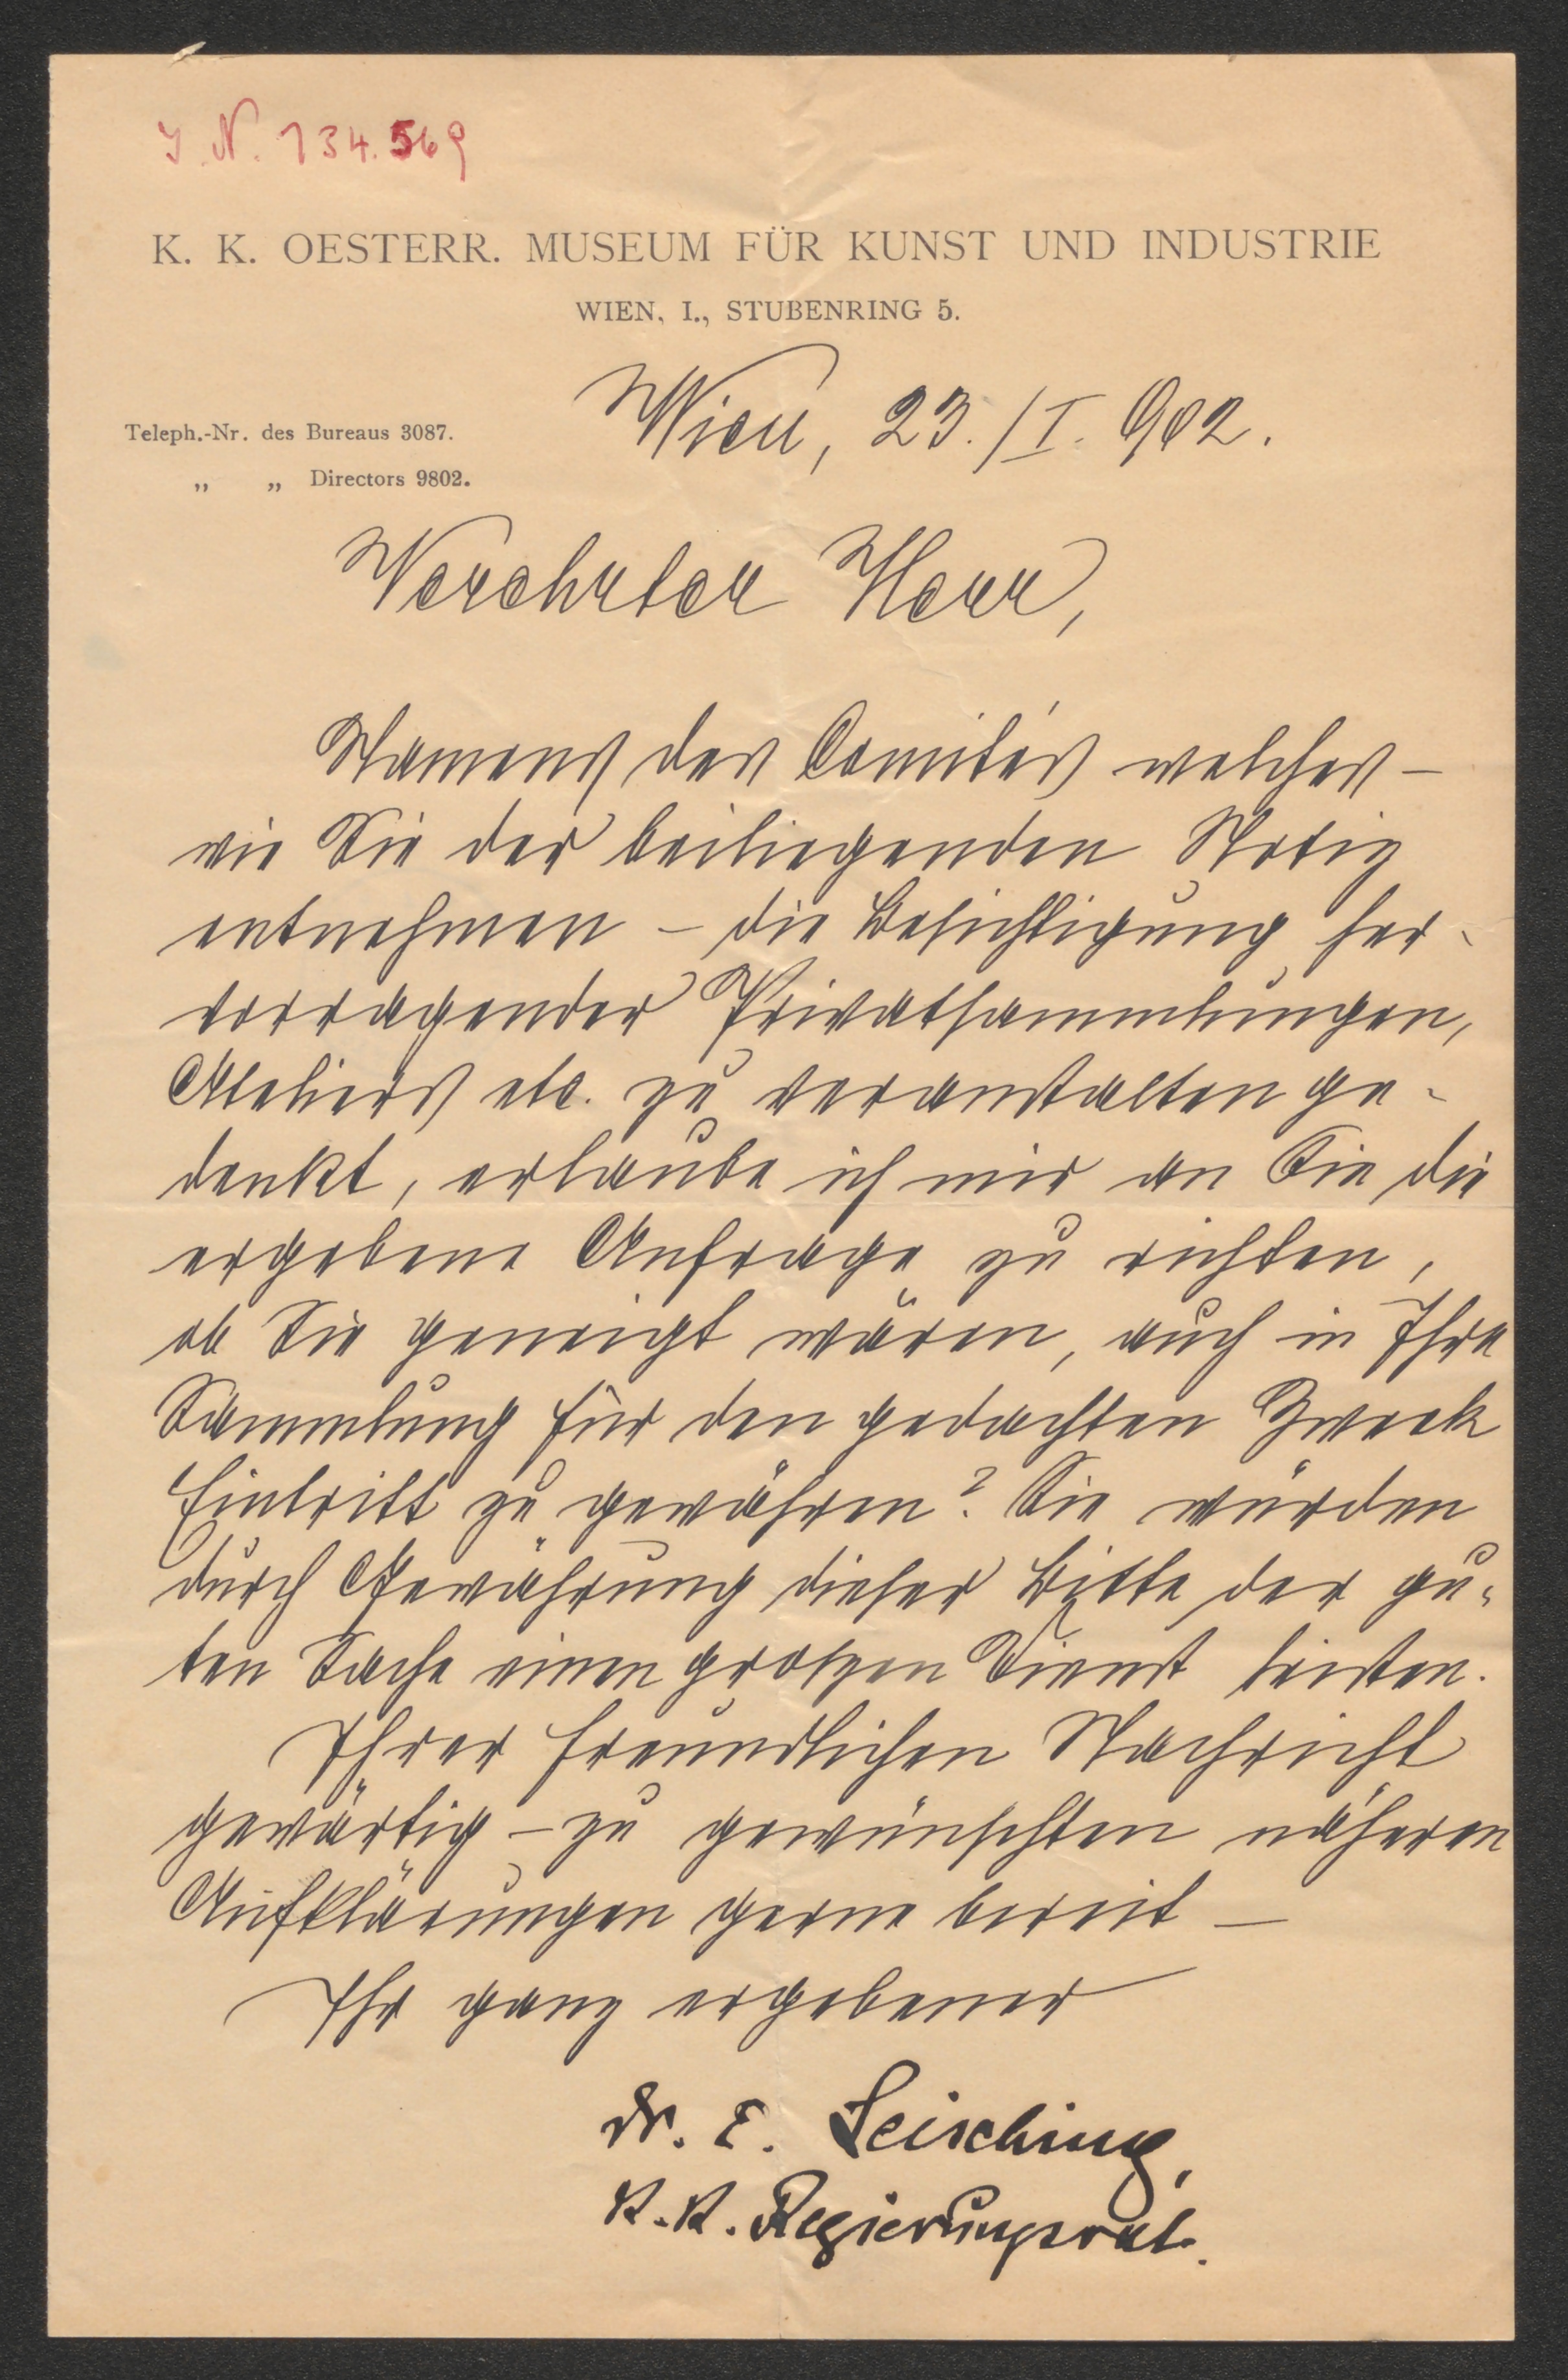 I. N. 134.569
K. K. OESTERR. MUSEUM FÜR KUNST UND INDUSTRIE
WIEN, I., STUBENRING 5.
Wien, 23./I. 902.
Teleph.-Nr. des Bureaus 3087.
„ „ Directors 9802.
Verehrter Herr,
Namens des Comités welches –
wie Sie der beiliegenden Notiz
entnehmen – die Besichtigung her-
vorragender Privatsammlungen,
Ateliers etc. zu veranstalten ge-
denkt, erlaube ich mir an Sie die
ergebene Anfrage zu richten,
ob Sie geneigt wären, auch in Ihre
Sammlung für den gedachten Zweck
Eintritt zu gewähren? Sie würden
durch Gewährung dieser Bitte der gu-
ten Sache einen großen Dienst leisten.
Ihrer freundlichen Nachricht
gewärtig – zu gewünschten näheren
Aufklärungen gerne bereit –
Ihr ganz ergebener
Dr. E. Leisching,
K. K. Regierungsrat.